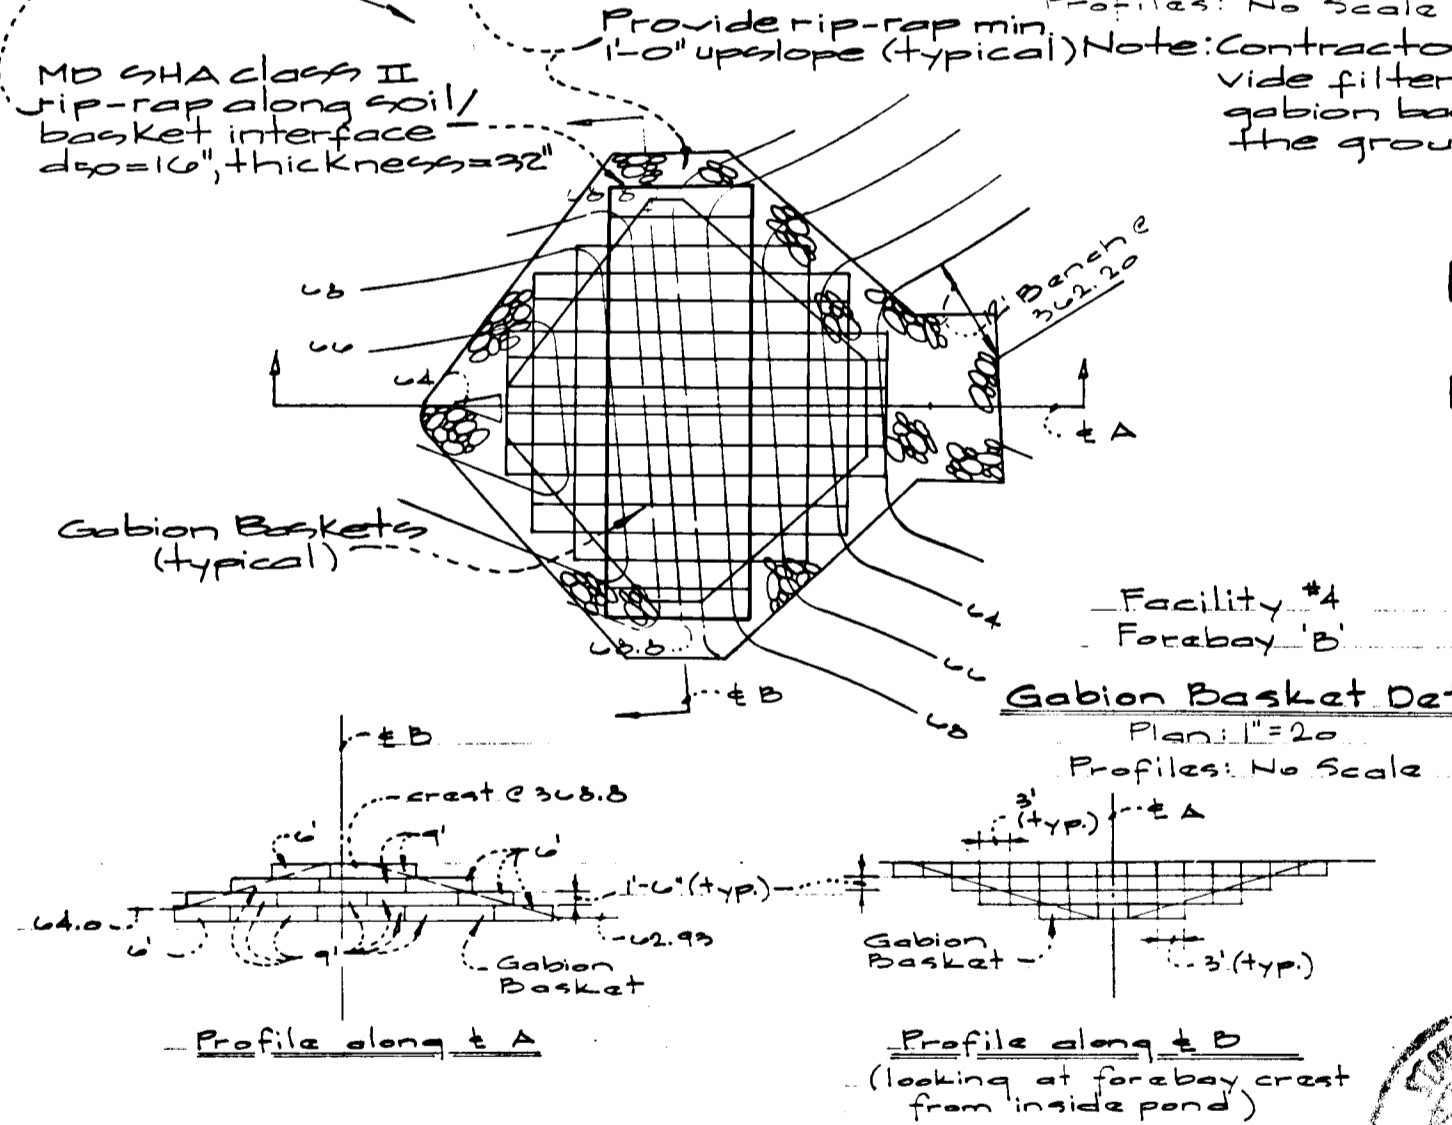 Profiles: No Scale
Provide rip-rap min.
1'-0" upslope (typical)
Note: Contracto
vide filter
gabion ba
the grou
MD SHA class II
rip-rap along soil/
basket interface
d50=16", thickness=32"
Bench @
362.20
68
66
64
68.8
℄ A
Gabion Baskets
(typical)
64
66
68
68.8
℄ B
Facility #4
Forebay 'B'
Gabion Basket Det
Plan: 1"=20
Profiles: No Scale
℄ B
crest @ 368.8
6'
9'
6'
1'-6" (typ.)
64.0
6'
9'
62.93
Gabion
Basket
Profile along ℄ A
3'
(typ.)
℄ A
Gabion
Basket
3' (typ.)
Profile along ℄ B
(looking at forebay crest
from inside pond)